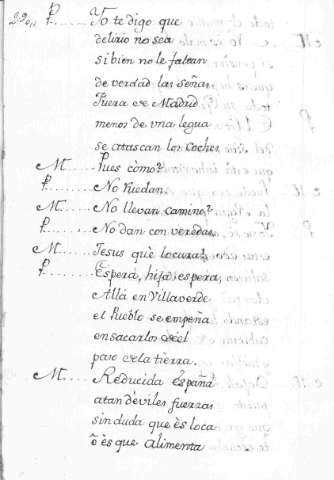 P. Yo te digo que
delirio no sea
si bien no le faltan
de verdad las señas
Fuera de Madrid
menos de vna legua
se atascan los coches
M. Pues còmo?
P. No ruedan.
M. No llevan camino?
P. No dan con veredas.
M. Jesus què locura!
P. Espera, hija, espera,
Allà en Villaverde
el Pueblo se empeña
en sacarlos de el
paso de la tierra.
M. Reducida España
a tan dèviles fuerzas
sin duda que ès loca
ò ès que alimenta